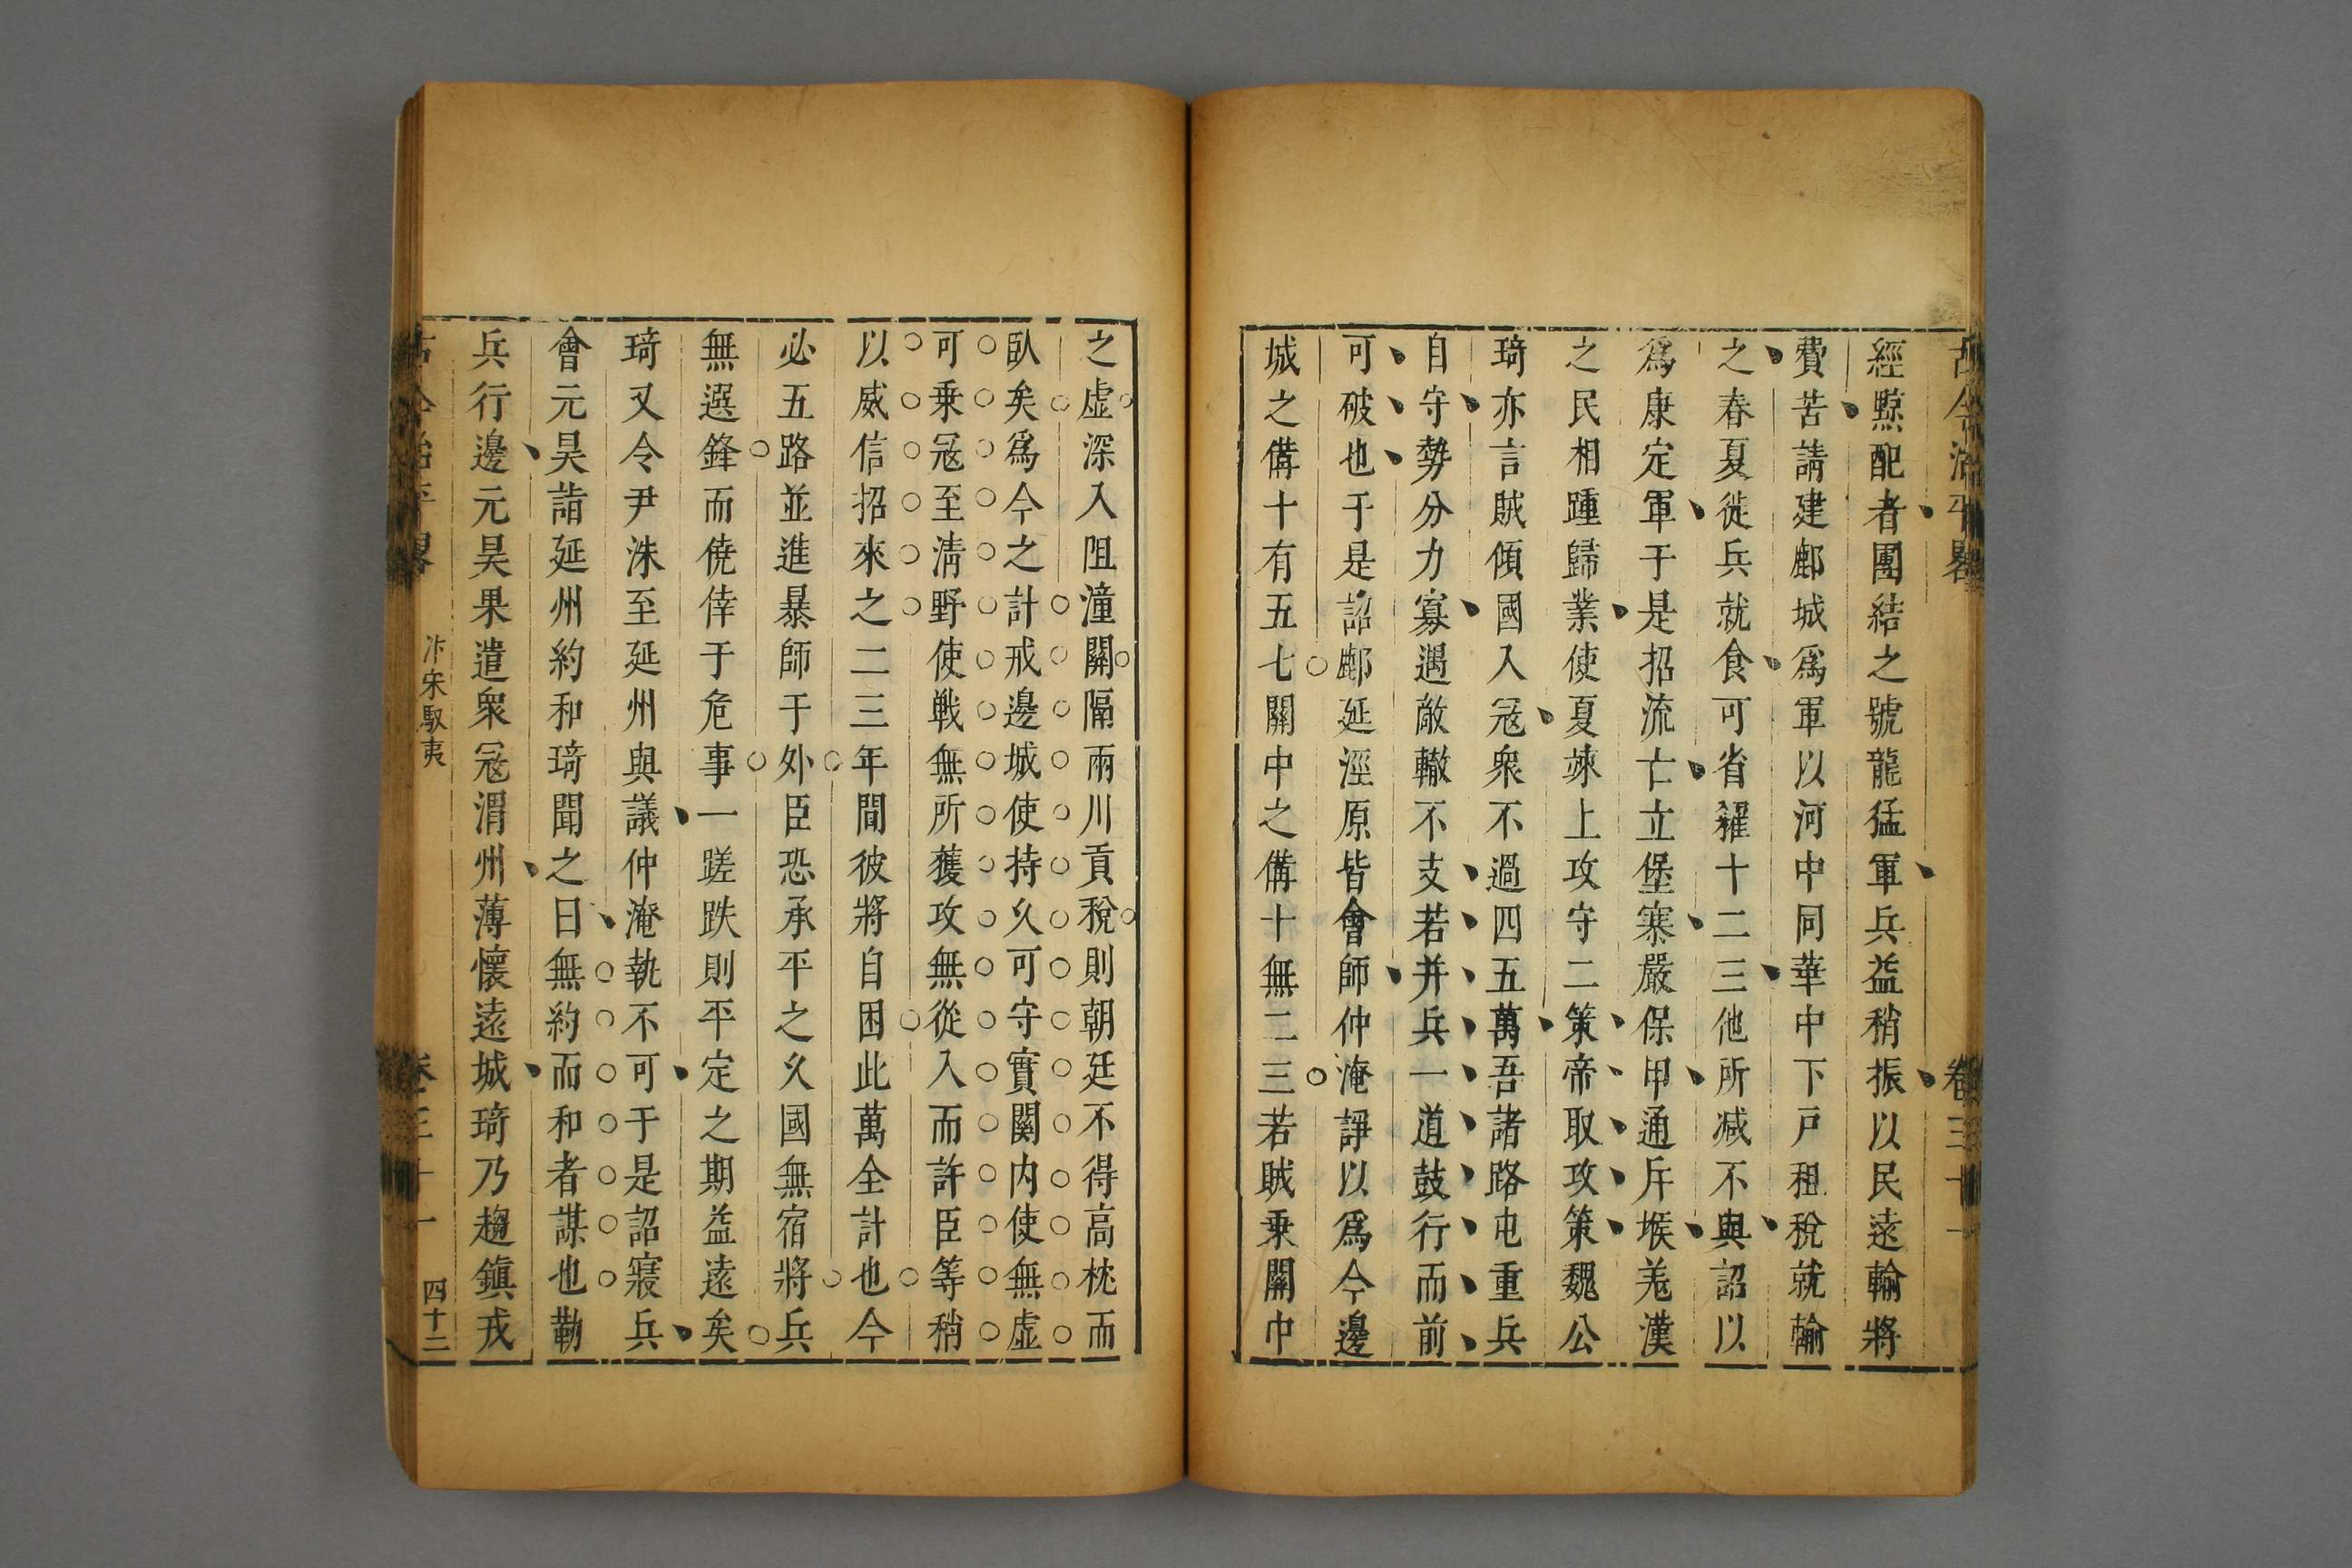 古今治平畧 卷三十一
經黥配者團結之號龍猛軍兵益稍振以民遠輸將
費苦請建鄜城爲軍以河中同華中下戸租稅就輸
之春夏徙兵就食可省糴十二三他所减不與詔以
爲康定軍于是招流亡立堡寨嚴保甲通斥堠羗漢
之民相踵歸業使夏竦上攻守二策帝取攻策魏公
琦亦言賊傾國入冦衆不過四五萬吾諸路屯重兵
自守勢分力寡遇敵輙不支若并兵一道鼓行而前
可破也于是詔鄜延涇原皆會師仲淹諍以爲今邊
城之備十有五七關中之備十無二三若賊乗關中
之虛深入阻潼關隔兩川貢稅則朝廷不得高枕而
臥矣爲今之計戒邊城使持久可守實関内使無虛
可乗冦至淸野使戰無所獲攻無從入而許臣等稍
以威信招來之二三年間彼將自困此萬全計也今
必五路並進暴師于外臣恐承平之久國無宿將兵
無選鋒而僥倖于危事一蹉跌則平定之期益遠矣
琦又令尹洙至延州與議仲淹執不可于是詔寢兵
會元昊詣延州約和琦聞之曰無約而和者謀也勒
兵行邊元昊果遣衆冦渭州薄懷遠城琦乃趨鎭戎
古今治平畧 汴宋馭夷 卷三十一 四十二